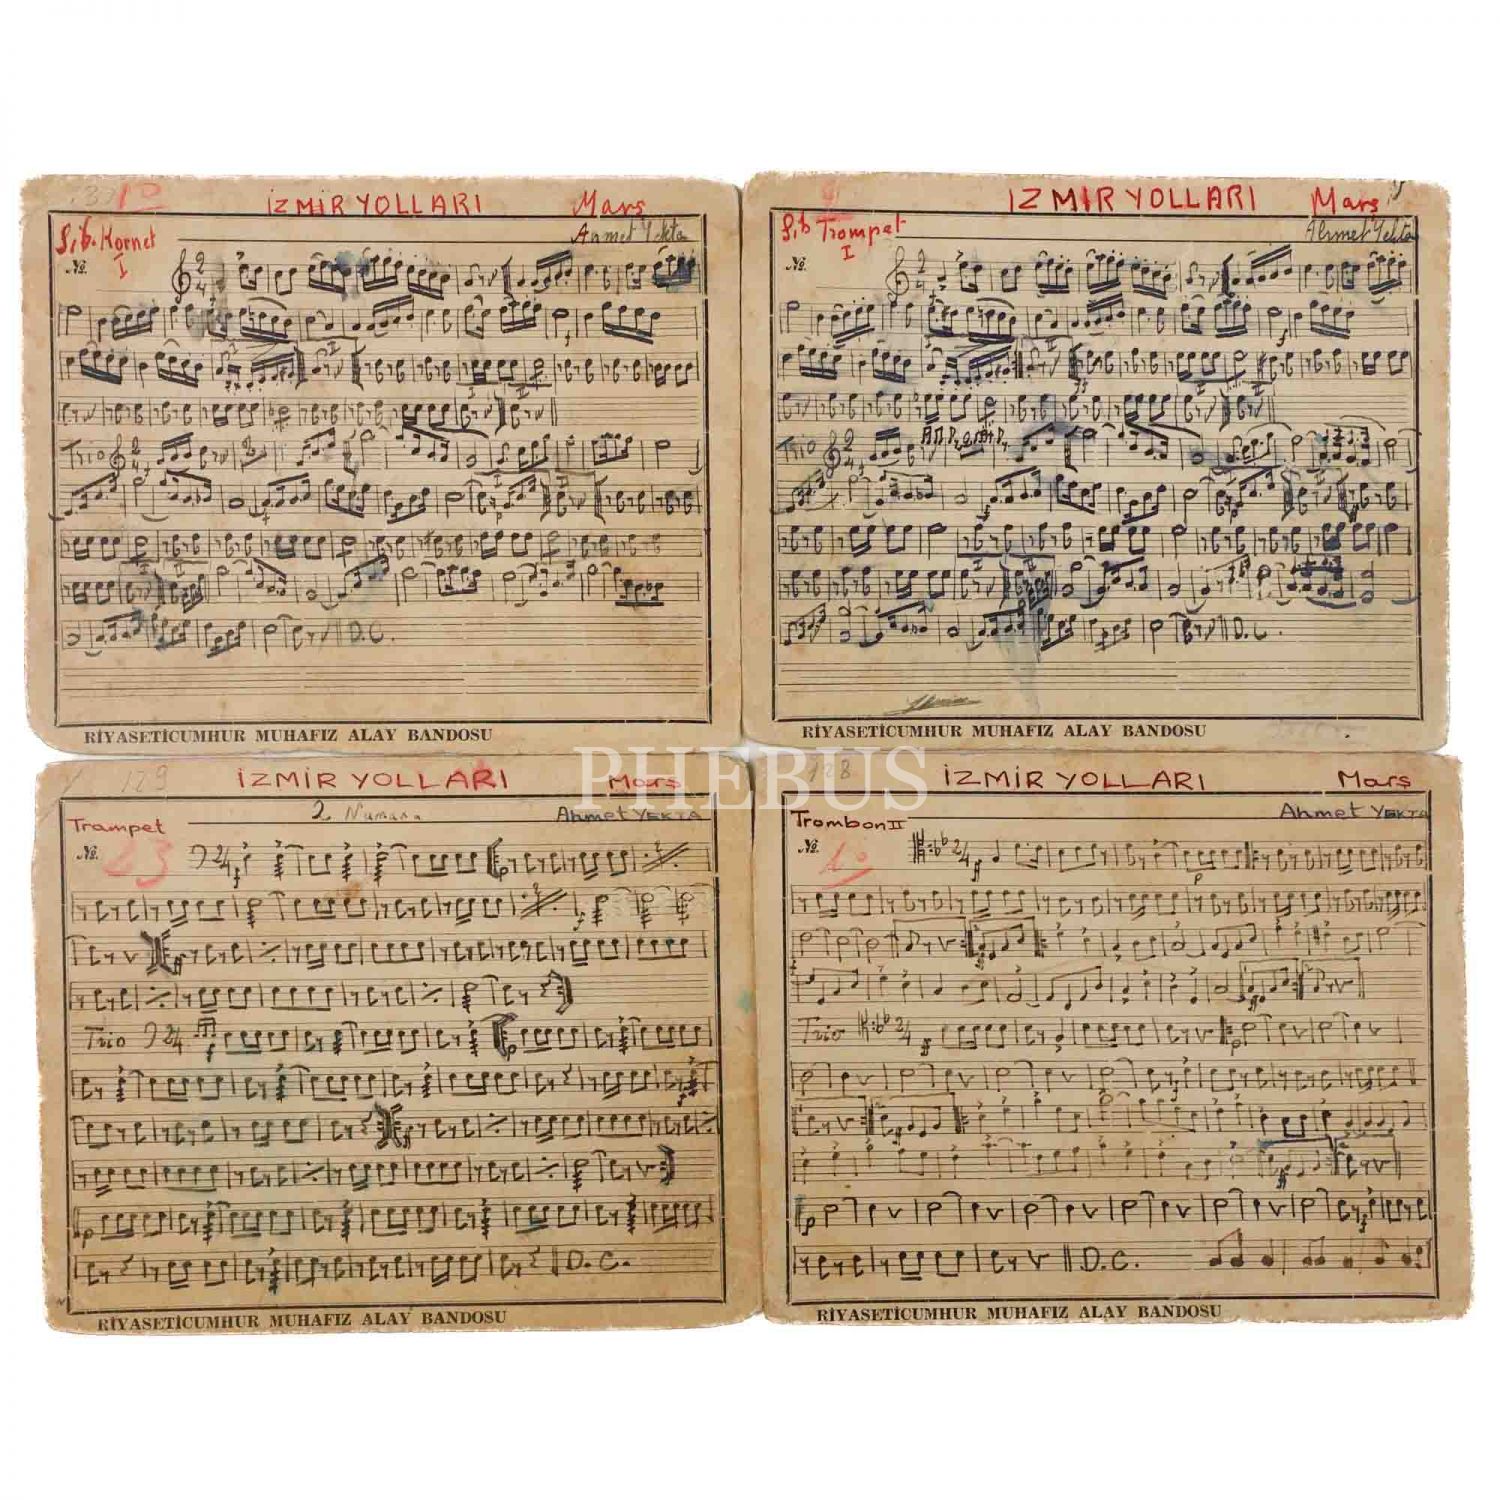 10
İZMİR YOLLARI Marş
Sib. Kornet
I
Ahmet Yekta
No.
Trio
D.C.
RİYASETİCUMHUR MUHAFIZ ALAY BANDOSU
İZMİR YOLLARI Marş
Sib Trompet
I
Ahmet Yekta
No.
Trio
D.C.
RİYASETİCUMHUR MUHAFIZ ALAY BANDOSU
PHEBUS
129
İZMİR YOLLARI Marş
2 Numara
Ahmet YEKTA
Trampet
No.
23
Trio
D.C.
RİYASETİCUMHUR MUHAFIZ ALAY BANDOSU
128
İZMİR YOLLARI Marş
Trombon II
Ahmet YEKTA
No.
Trio
D.C.
RİYASETİCUMHUR MUHAFIZ ALAY BANDOSU